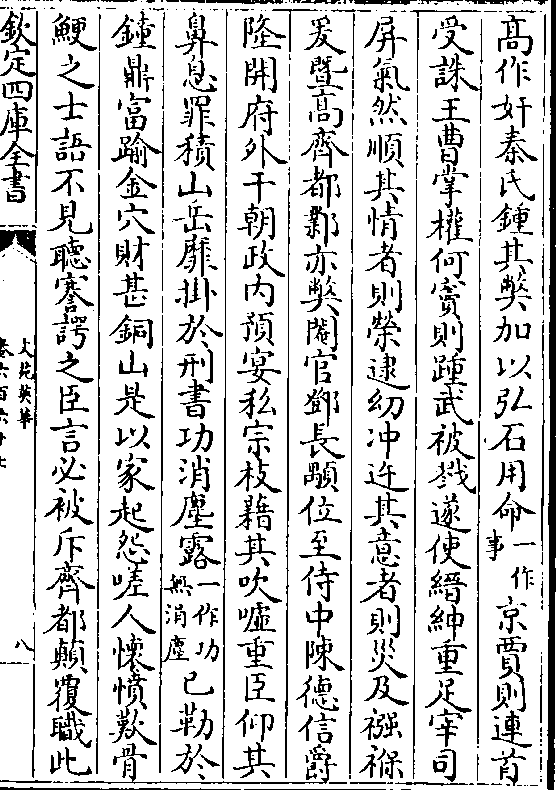 髙作奸秦氏鍾其弊加以弘石用命一作事京賈則連首
受誅王曹掌權何竇則踵武被戮遂使縉紳重足宰司
屏氣然順其情者則榮逮幼冲迕其意者則災及襁褓
爰暨髙齊都鄴亦弊閹官鄧長顒位至侍中陳德信爵
隆開府外干朝政内預宴私宗枝藉其吹噓重臣仰其
鼻息罪積山岳靡掛於刑書功消塵露一作功無消塵已勒於
鐘鼎富踰金穴財甚銅山是以家起怨嗟人懷憤歎骨
鯁之士語不見聽謇諤之臣言必被斥齊都顛覆職此
欽定四庫全書
文苑英華
卷六百六十七
八